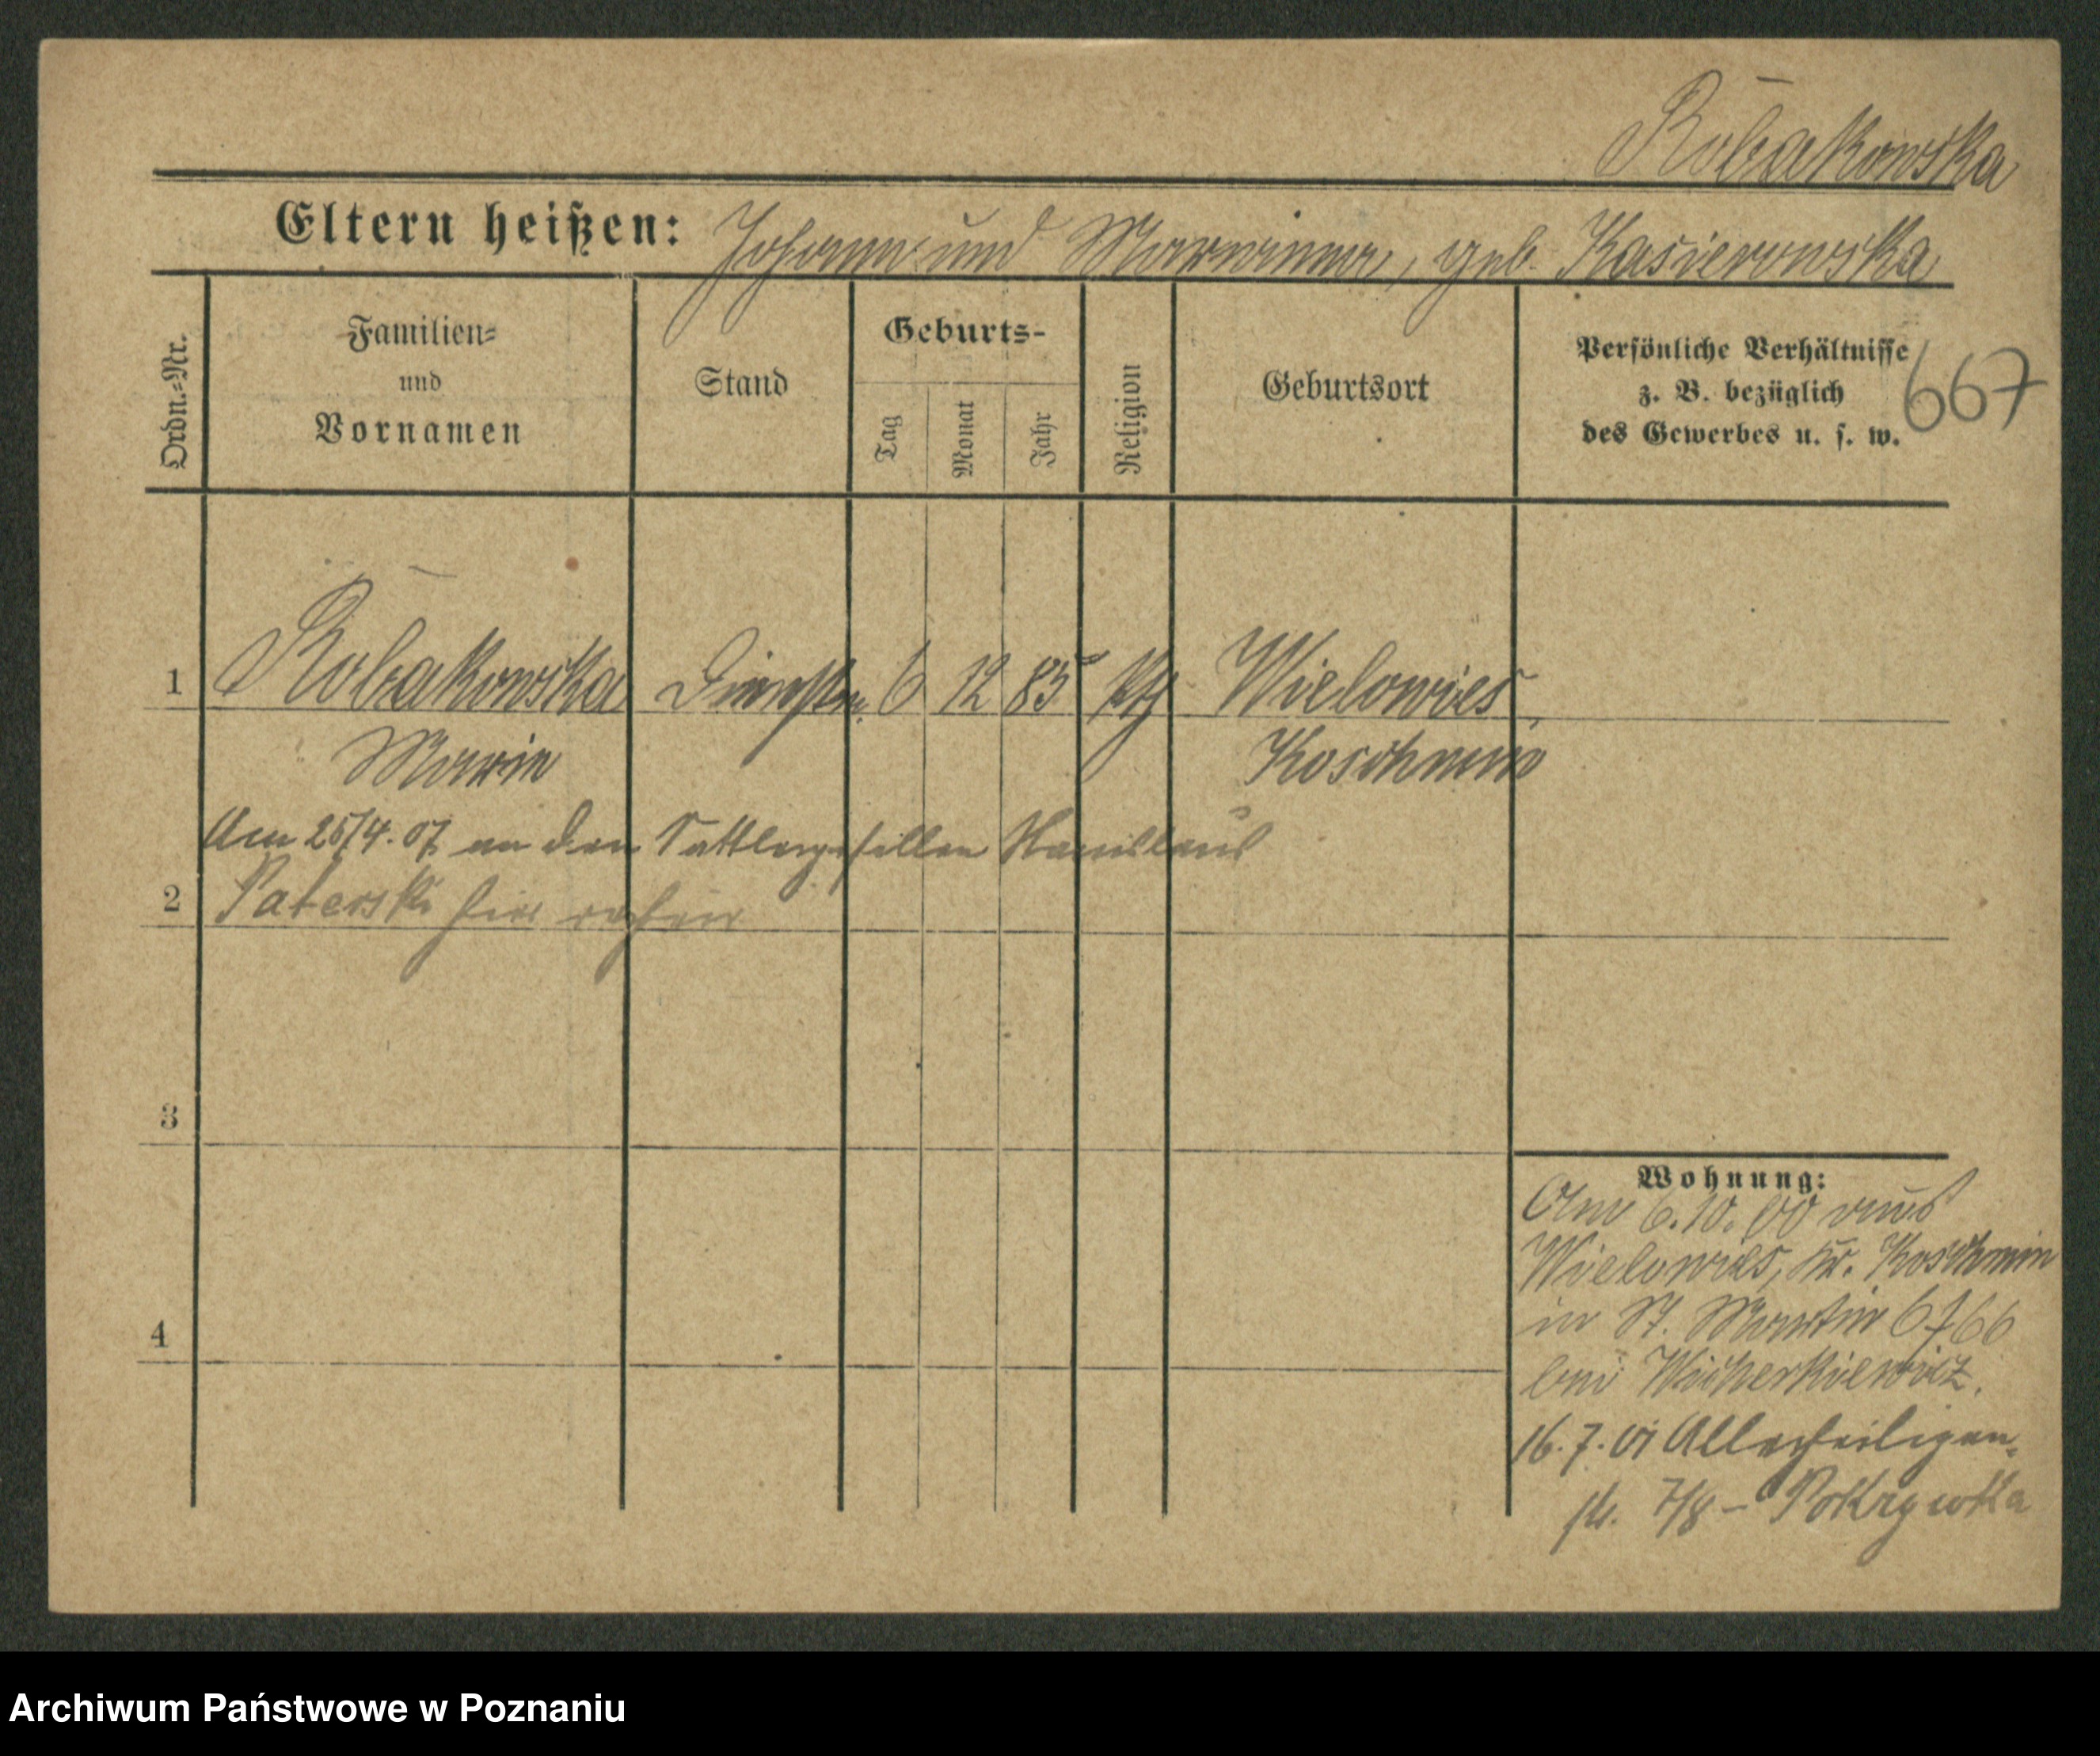 Robakowska
Eltern heißen: Johann und Marianna, geb. Kasierowska
Ordn.-Nr.
Familien- und Vornamen
Stand
Geburts-
Tag
Monat
Jahr
Religion
Geburtsort
Persönliche Verhältnisse
z. B. bezüglich
des Gewerbes u. s. w.
667
1 Robakowska Dienstm. 6 12 85 kth Wielowies,
Marie Koschmin
Am 25/4. 07 an den Sattlergesellen Stanislaus
2 Paterski hier
3
4
Wohnung:
Am 6.10.00 aus
Wielowies, Kr. Koschmin
in St. Martin 67/66
bei Wicherkiewicz.
16.7.01 Allerheiligen-
str. 7/8 - Pokrzywka
Archiwum Państwowe w Poznaniu